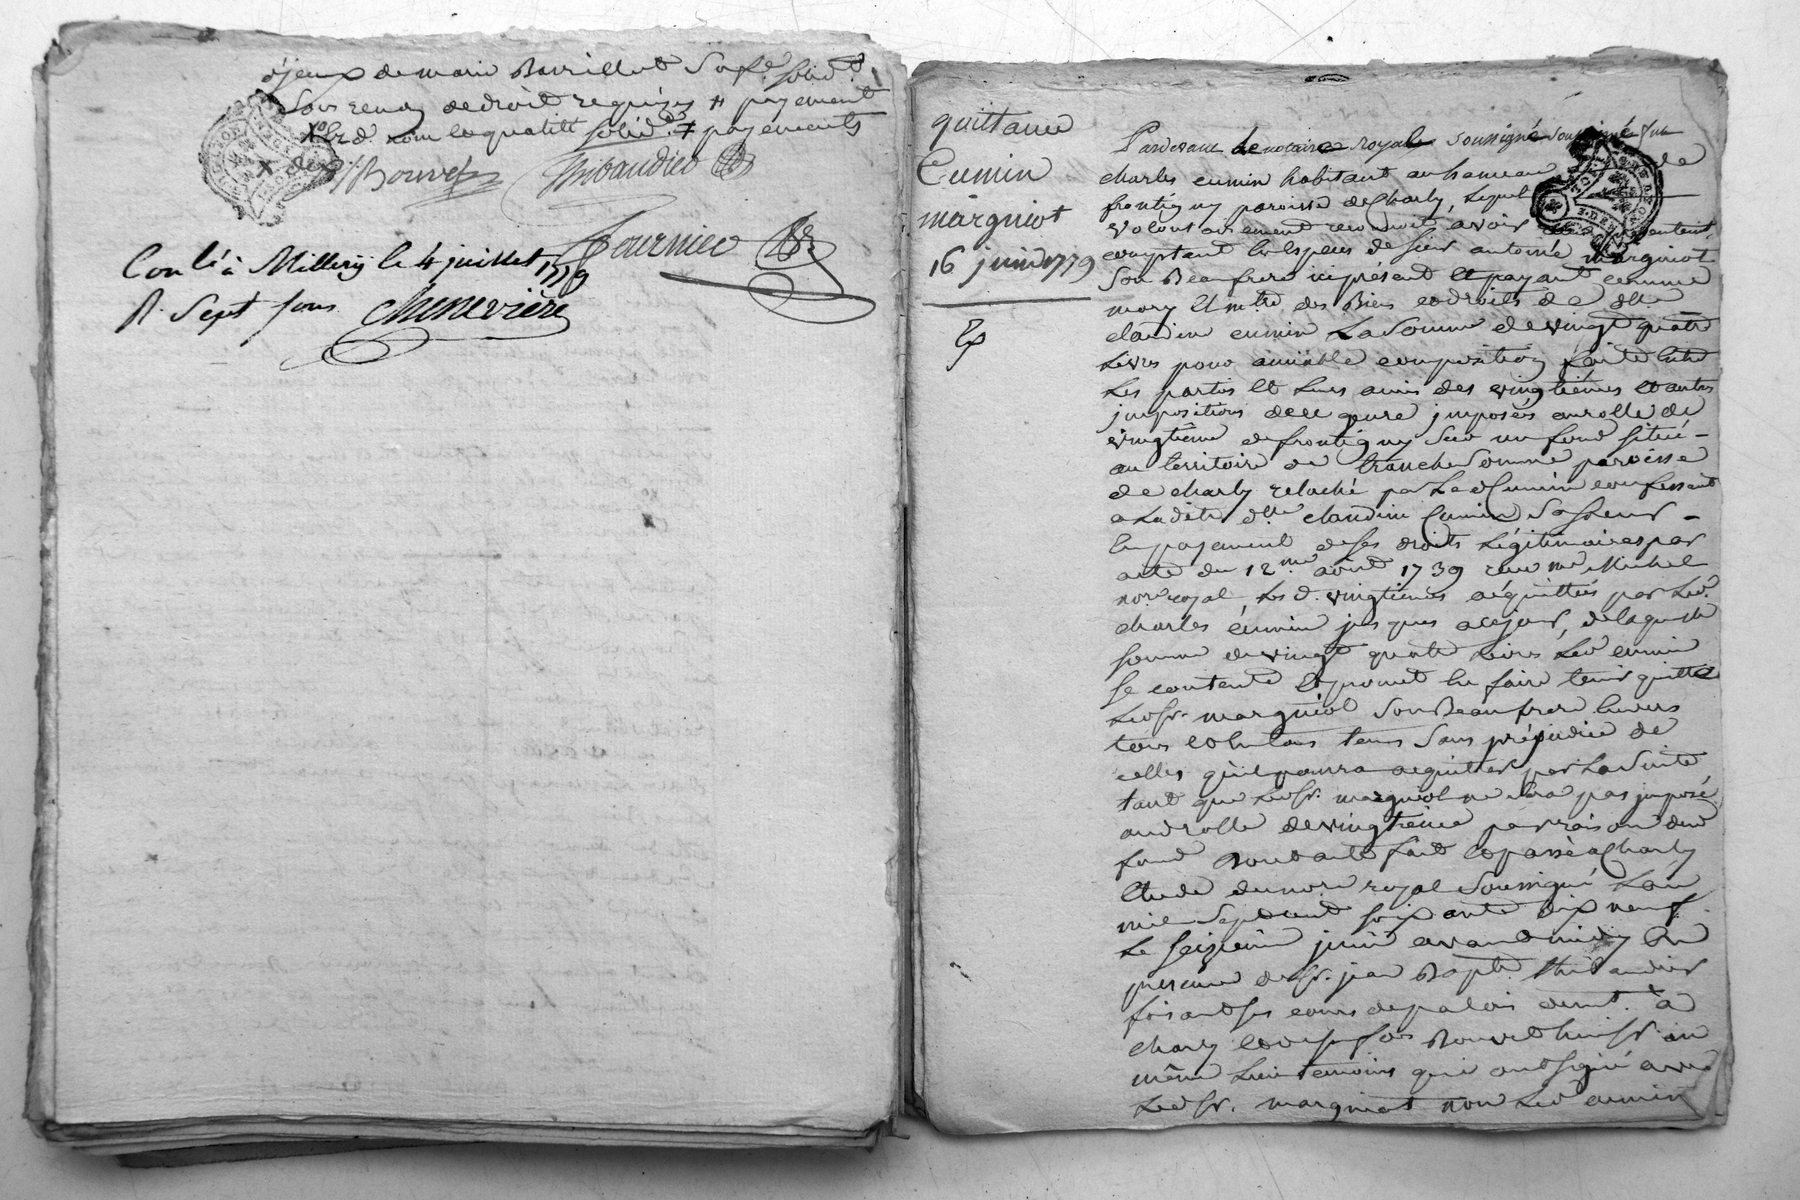 de marie Barrillot
de droit requises # payement
solid. # payements
Bouvet Thibaudier
Fournier
Con.lé à Millery le 4 juillet 1779
R. Sept sous Chenevière
quittance
Cumin
margniot
16 juin 1779
Pardevant le notaire royal soussigné
charles cumin habitant au hameau de
frontigny paroisse de Charly, lequel
volontairement reconnoit avoir
comptant les especes de sieur antoine margniot
son Beaufrere icy présent et payant comme
mary et mtre des Biens et droits de dlle
claudine cumin La Somme de vingt quatre
Livres pour amiable composition faite entre
Les parties et Leurs amis des vingtièmes et autres
impositions de ce genre imposées au rolle de
vingtième de frontigny sur un fond situé
au territoire de tranchesomme paroisse
de charly relaché par Led Cumin confessant
a Ladite dlle claudine Cumin Sa soeur
En payement de ses droits Légitimaires par
acte du 12me août 1739 reçu me Michel
nore royal, Les d. vingtièmes acquittées par Led.
charles cumin jusques a ce jour, de laquelle
somme de vingt quatre Livres Led cumin
se contente et promet En faire tenir quitte
Led Sr. margniot Son Beaufrere Envers
tous et En tous tems Sans préjudice de
celles qu'il pourra acquitter par La Suite
tant que Led Sr. margniot ne sera pas imposé
au d rolle de vingtième par raison dud
fond Dont acte fait et passé a Charly
Etude du nore royal Soussigné Lan
mil Sept cent soixante dix neuf
Le seizième juin avant midy En
presence de Sr. jean Bapte Thibaudier
faisant ses cours de palais demt. à
charly et de Sr. fois Bouvet huissr. au
même Lieu temoins qui ont signé avec
Led Sr. margniot non Led cumin